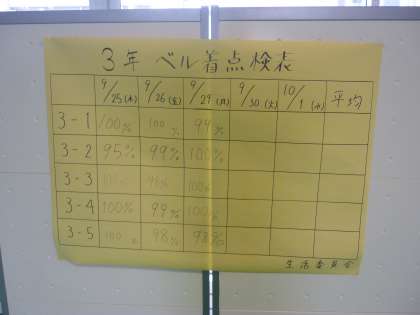 3年 ベル着点検表
9/25(木) 9/26(金) 9/29(月) 9/30(火) 10/1(水) 平均
3-1 100% 100% 99%
3-2 95% 99% 100%
3-3 100% 98% 100%
3-4 100% 99% 100%
3-5 100% 98% 98%
生活委員会